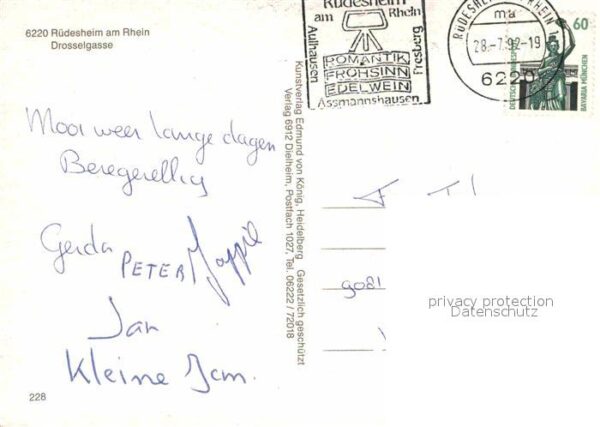 6220 Rüdesheim am Rhein
Drosselgasse
Mooi weer lange dagen
Beregezellig
Gerda
PETER
Jan
Kleine Jan.
228
Kunstverlag Edmund von König, Heidelberg Gesetzlich geschützt
Verlag 6912 Dielheim, Postfach 1027, Tel. 06222 / 72018
Rüdesheim
am Rhein
Aulhausen
Presberg
ROMANTIK
FROHSINN
EDELWEIN
Assmannshausen
RÜDESHEIM AM RHEIN 1
ma
28.-7.92-19
6220
60
DEUTSCHE BUNDESPOST
BAVARIA MÜNCHEN
9081
privacy protection
Datenschutz